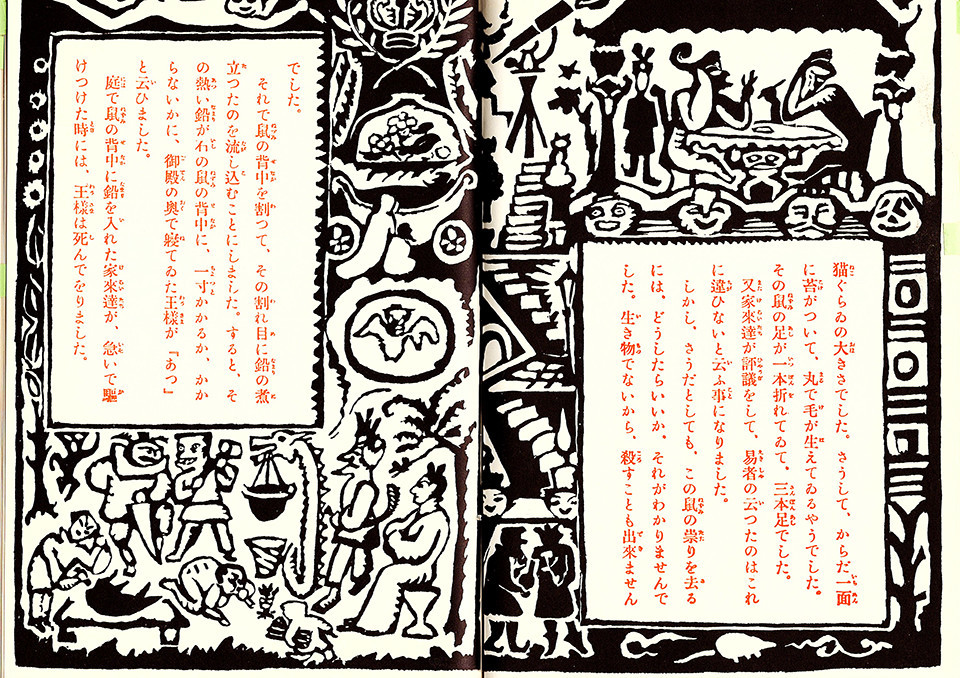 猫ぐらゐの大きさでした。さうして、からだ一面
に苔がついて、丸で毛が生えてゐるやうでした。
その鼠の足が一本折れてゐて、三本足でした。
又家來達が評議をして、易者の云つたのはこれ
に違ひないと云ふ事になりました。
しかし、さうだとしても、この鼠の祟りを去る
には、どうしたらいいか、それがわかりませんで
した。生き物でないから、殺すことも出來ません
でした。
それで鼠の背中を割つて、その割れ目に鉛の煮
立つたのを流し込むことにしました。すると、そ
の熱い鉛が石の鼠の背中に、一寸かかるか、かか
らないかに、御殿の奥で寢てゐた王樣が『あつ』
と云ひました。
庭で鼠の背中に鉛を入れた家來達が、急いで驅
けつけた時には、王樣は死んでをりました。